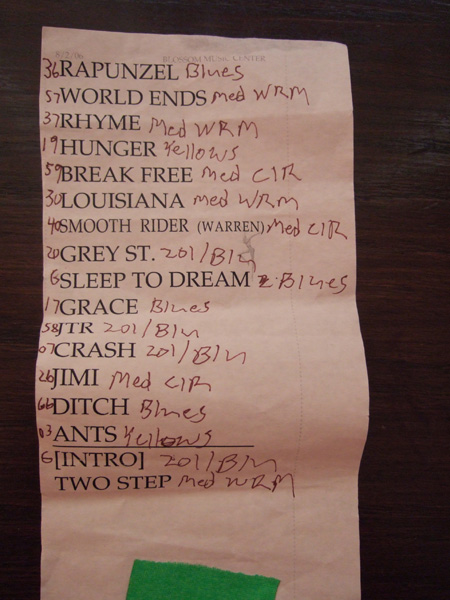 8/2/06 BLOSSOM MUSIC CENTER
36 RAPUNZEL Blues
57 WORLD ENDS Med WRM
37 RHYME Med WRM
19 HUNGER Yellows
59 BREAK FREE Med CIR
30 LOUISIANA Med WRM
40 SMOOTH RIDER (WARREN) Med CIR
20 GREY ST. 201/BIU
6 SLEEP TO DREAM Blues
17 GRACE Blues
58 JTR 201/BIU
07 CRASH 201/BIU
26 JIMI Med CIR
66 DITCH Blues
03 ANTS Yellows
6 [INTRO] 201/BIU
TWO STEP Med WRM